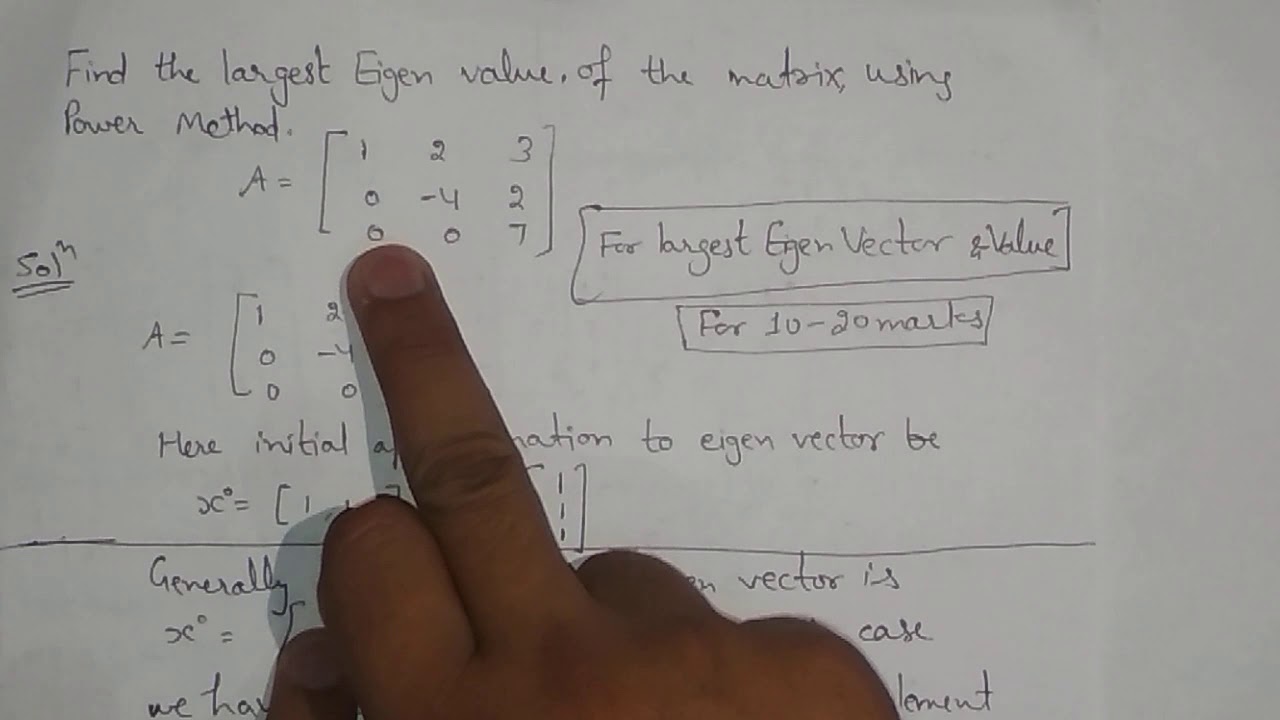 Find the largest Eigen value of the matrix, using
Power Method.
A = [ 1 2 3
0 -4 2
0 0 7 ]
For largest Eigen Vector & Value
For 10-20 marks
Solⁿ
A = [ 1 2
0 -4
0 0
Here initial to eigen vector be
x° = [ 1
1
1
1 ]
Generally vector is
x° = case
we